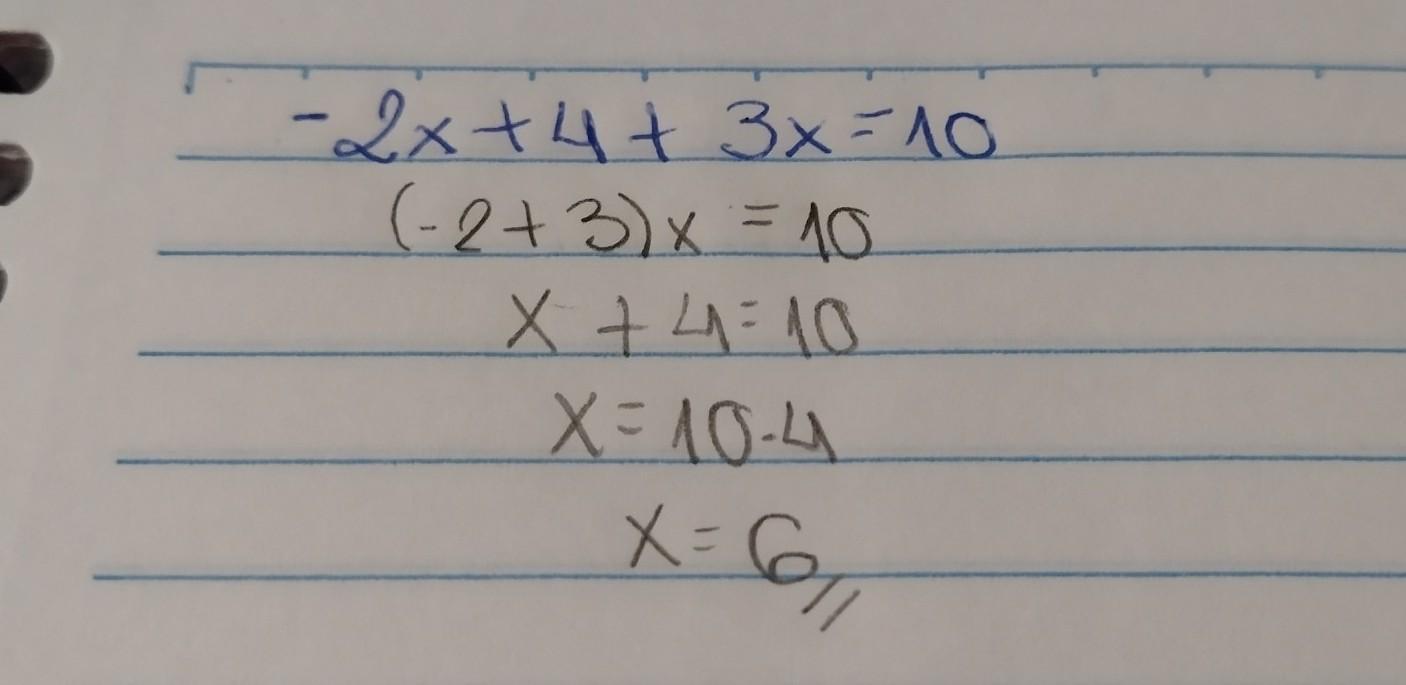 -2x+4+3x=10
(-2+3)x=10
x+4=10
x=10-4
x=6//